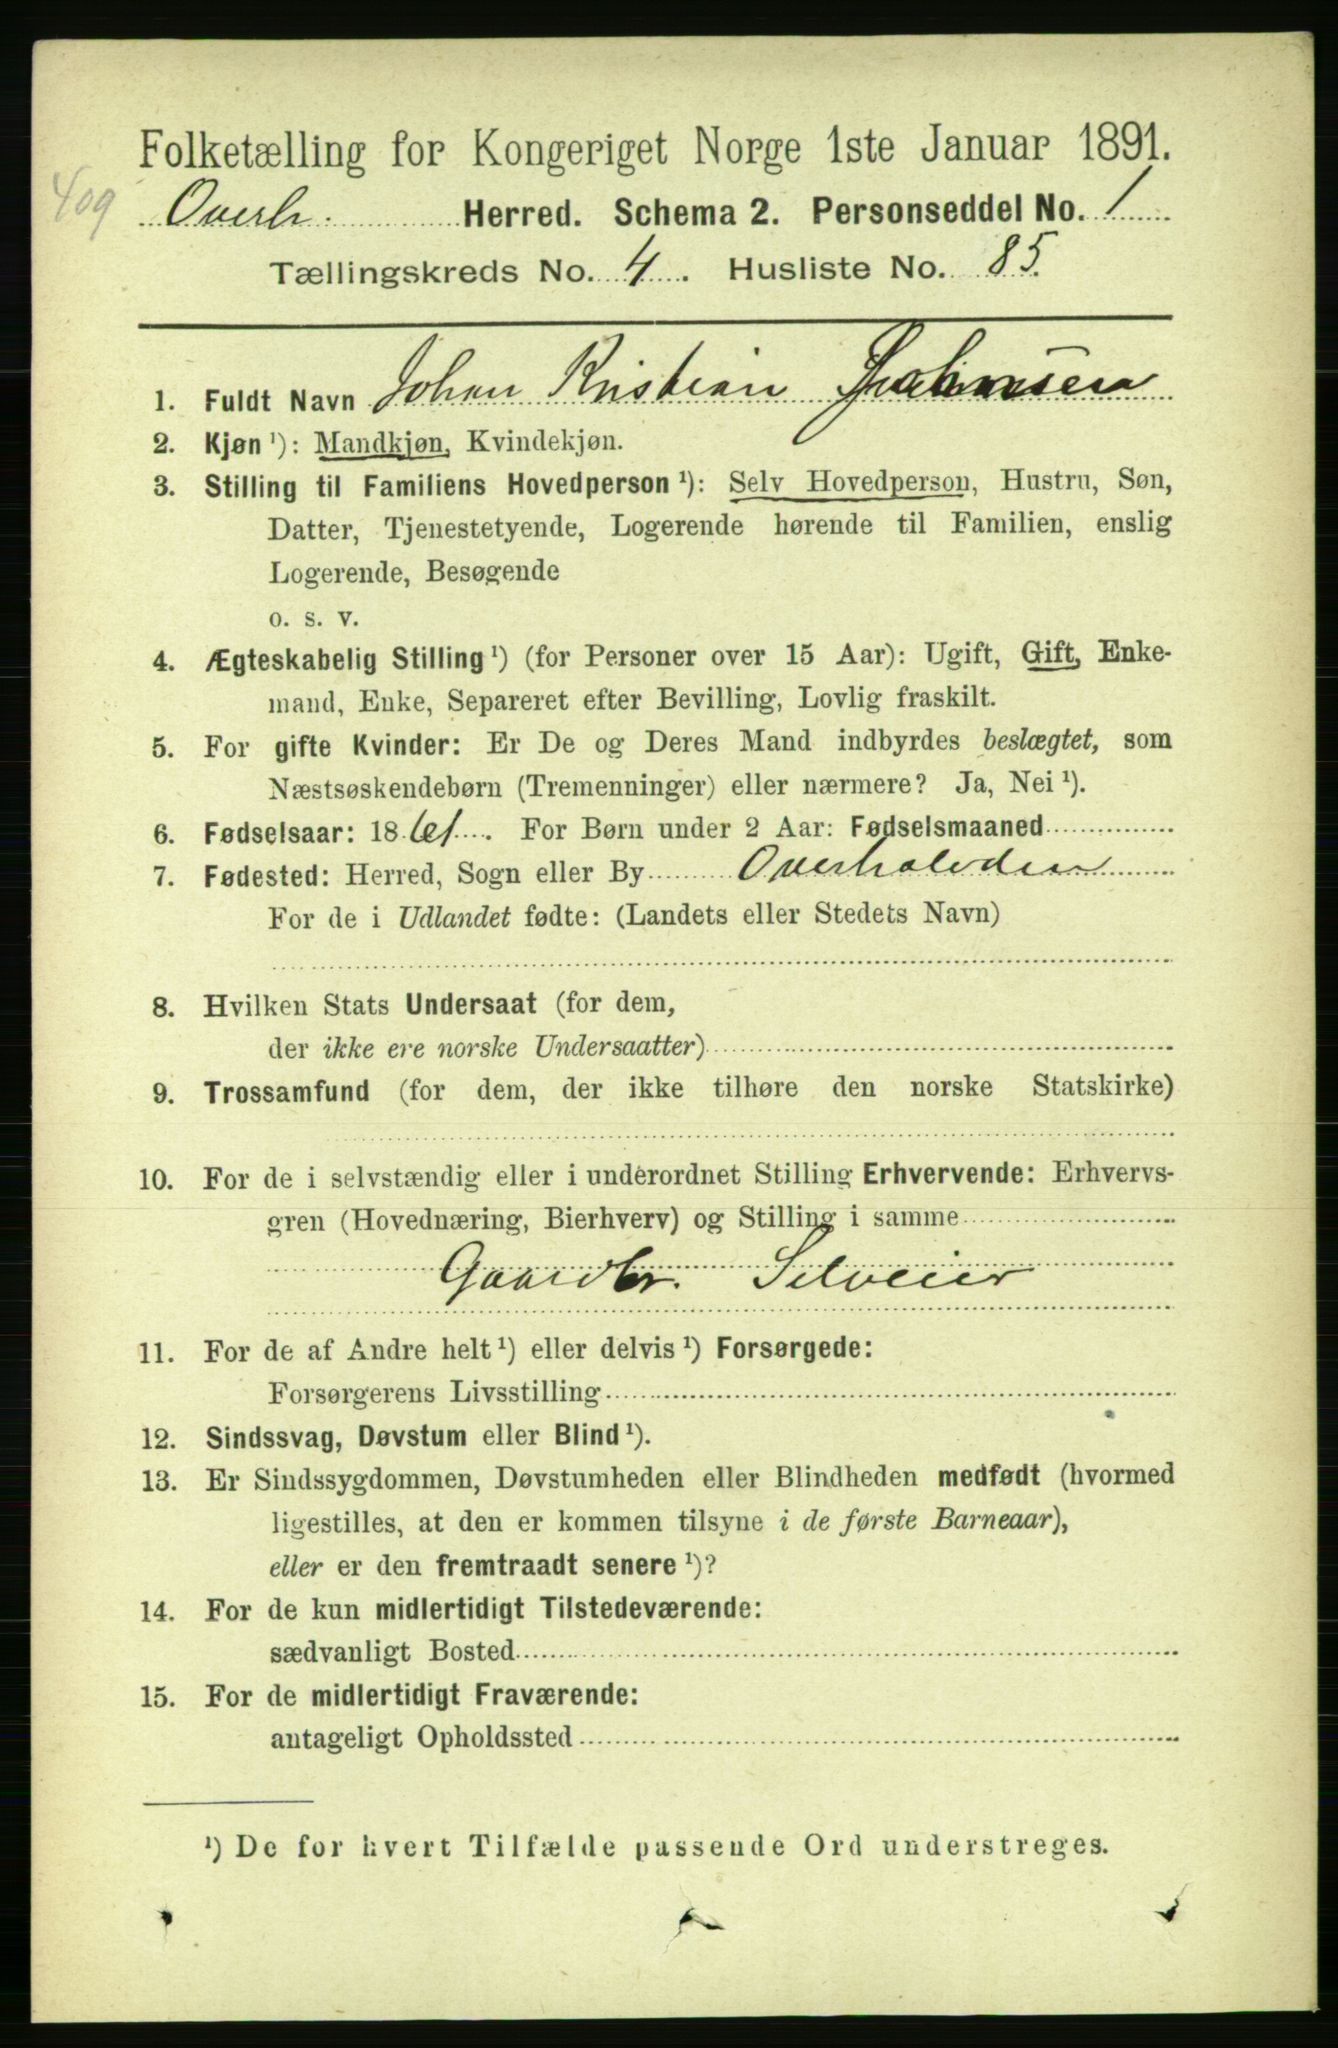 Folketælling for Kongeriget Norge 1ste Januar 1891.
409
Overh. Herred. Schema 2. Personseddel No. 1
Tællingskreds No. 4. Husliste No. 85.
1. Fuldt Navn Johan Kristian
2. Kjøn ¹): Mandkjøn, Kvindekjøn.
3. Stilling til Familiens Hovedperson ¹): Selv Hovedperson, Hustru, Søn,
Datter, Tjenestetyende, Logerende hørende til Familien, enslig
Logerende, Besøgende
o. s. v.
4. Ægteskabelig Stilling ¹) (for Personer over 15 Aar): Ugift, Gift, Enke-
mand, Enke, Separeret efter Bevilling, Lovlig fraskilt.
5. For gifte Kvinder: Er De og Deres Mand indbyrdes beslægtet, som
Næstsøskendebørn (Tremenninger) eller nærmere? Ja, Nei ¹).
6. Fødselsaar: 1861. For Børn under 2 Aar: Fødselsmaaned
7. Fødested: Herred, Sogn eller By Overhalvden
For de i Udlandet fødte: (Landets eller Stedets Navn)
8. Hvilken Stats Undersaat (for dem,
der ikke ere norske Undersaatter)
9. Trossamfund (for dem, der ikke tilhøre den norske Statskirke)
10. For de i selvstændig eller i underordnet Stilling Erhvervende: Erhvervs-
gren (Hovednæring, Bierhverv) og Stilling i samme
Gaardbr. Selveier
11. For de af Andre helt ¹) eller delvis ¹) Forsørgede:
Forsørgerens Livsstilling
12. Sindssvag, Døvstum eller Blind ¹).
13. Er Sindssygdommen, Døvstumheden eller Blindheden medfødt (hvormed
ligestilles, at den er kommen tilsyne i de første Barneaar),
eller er den fremtraadt senere ¹)?
14. For de kun midlertidigt Tilstedeværende:
sædvanligt Bosted
15. For de midlertidigt Fraværende:
antageligt Opholdssted
¹) De for hvert Tilfælde passende Ord understreges.